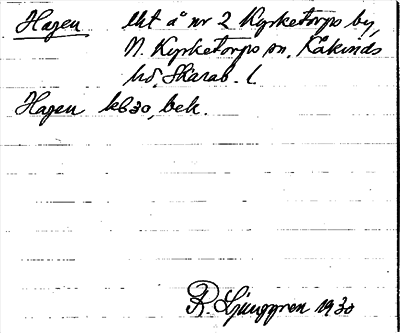 Hagen lht å nr 2 Kyrketorps by,
N. Kyrketorps sn. Kåkinds
hd. Skarab. l.
Hagen kb30, bek.
R. Ljunggren 1930